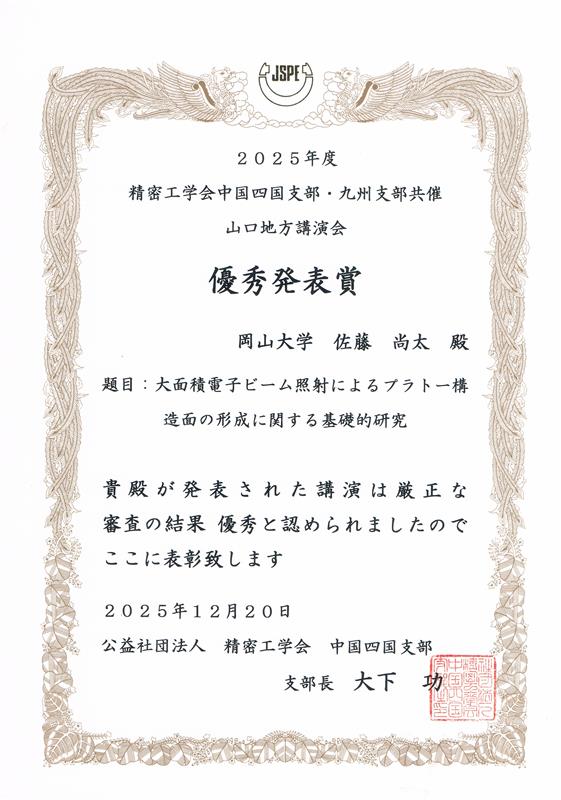 JSPE
2025年度
精密工学会中国四国支部・九州支部共催
山口地方講演会
優秀発表賞
岡山大学　佐藤　尚太　殿
題目：大面積電子ビーム照射によるプラトー構
造面の形成に関する基礎的研究
貴殿が発表された講演は厳正な
審査の結果 優秀と認められましたので
ここに表彰致します
2025年12月20日
公益社団法人　精密工学会　中国四国支部
支部長　大下　功